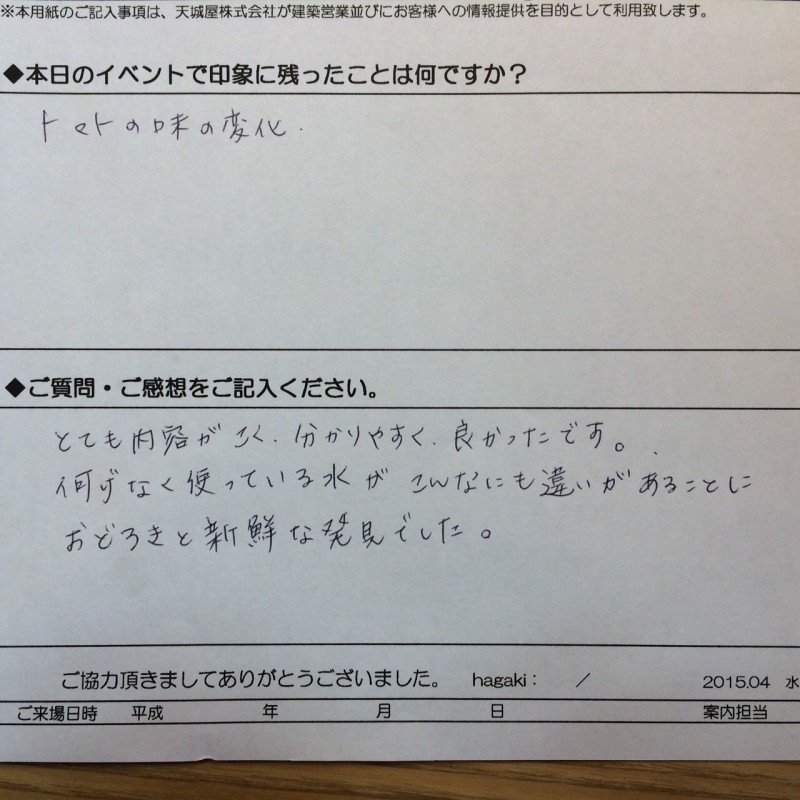 ※本用紙のご記入事項は、天城屋株式会社が建築営業並びにお客様への情報提供を目的として利用致します。
◆本日のイベントで印象に残ったことは何ですか？
トマトの味の変化.
◆ご質問・ご感想をご記入ください。
とても内容がこく、分かりやすく、良かったです。
何げなく使っている水がこんなにも違いがあることに
おどろきと新鮮な発見でした。
ご協力頂きましてありがとうございました。 hagaki： ／ 2015.04 水
ご来場日時 平成 年 月 日 案内担当